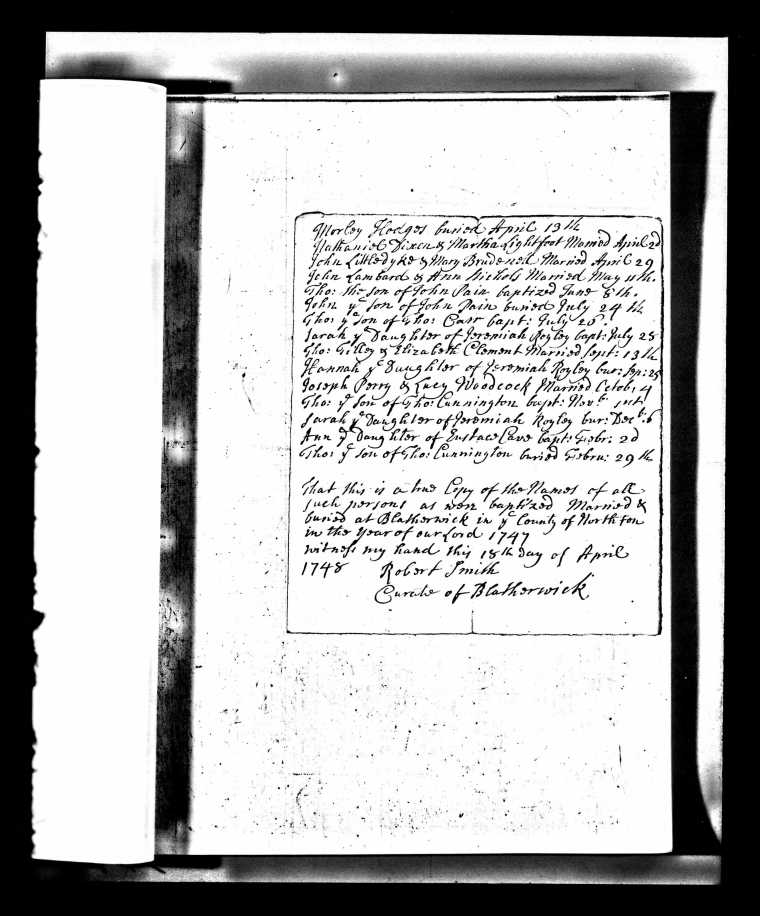 Morley Hodges buried April 13th
Nathaniel Dixen & Martha Lightfoot Married April 2d
John Littledyke & Mary Married April 29
John Lambard & Ann Nichols Married May 11th.
Tho: the son of John Pain baptized June 8th.
John ye son of John Pain buried July 24th
Tho: ye son of Tho: bapt: July 26
Sarah ye Daughter of Jeremiah Royley bapt: July 28
Tho: Tilley & Elizabeth Clement Married Sept: 13th
Hannah ye Daughter of Jeremiah Royley bur: Sep: 28
Joseph Perry & Lucy Woodcock Married Octob: 4
Tho: ye Son of Tho: Cunnington bapt: Novbr: 1st
Sarah ye Daughter of Jeremiah Royley bur: Decbr: 6
Ann ye Daughter of Eustace Cave bapt: Febr: 2d
Tho: ye son of Tho: Cunnington buried Febru: 29th
That this is a true Copy of the Names of all
such persons as were baptized Married &
buried at Blatherwick in ye County of Northton
in the Year of our Lord 1747
witness my hand this 18th day of April
1748 Robert Smith
Curate of Blatherwick